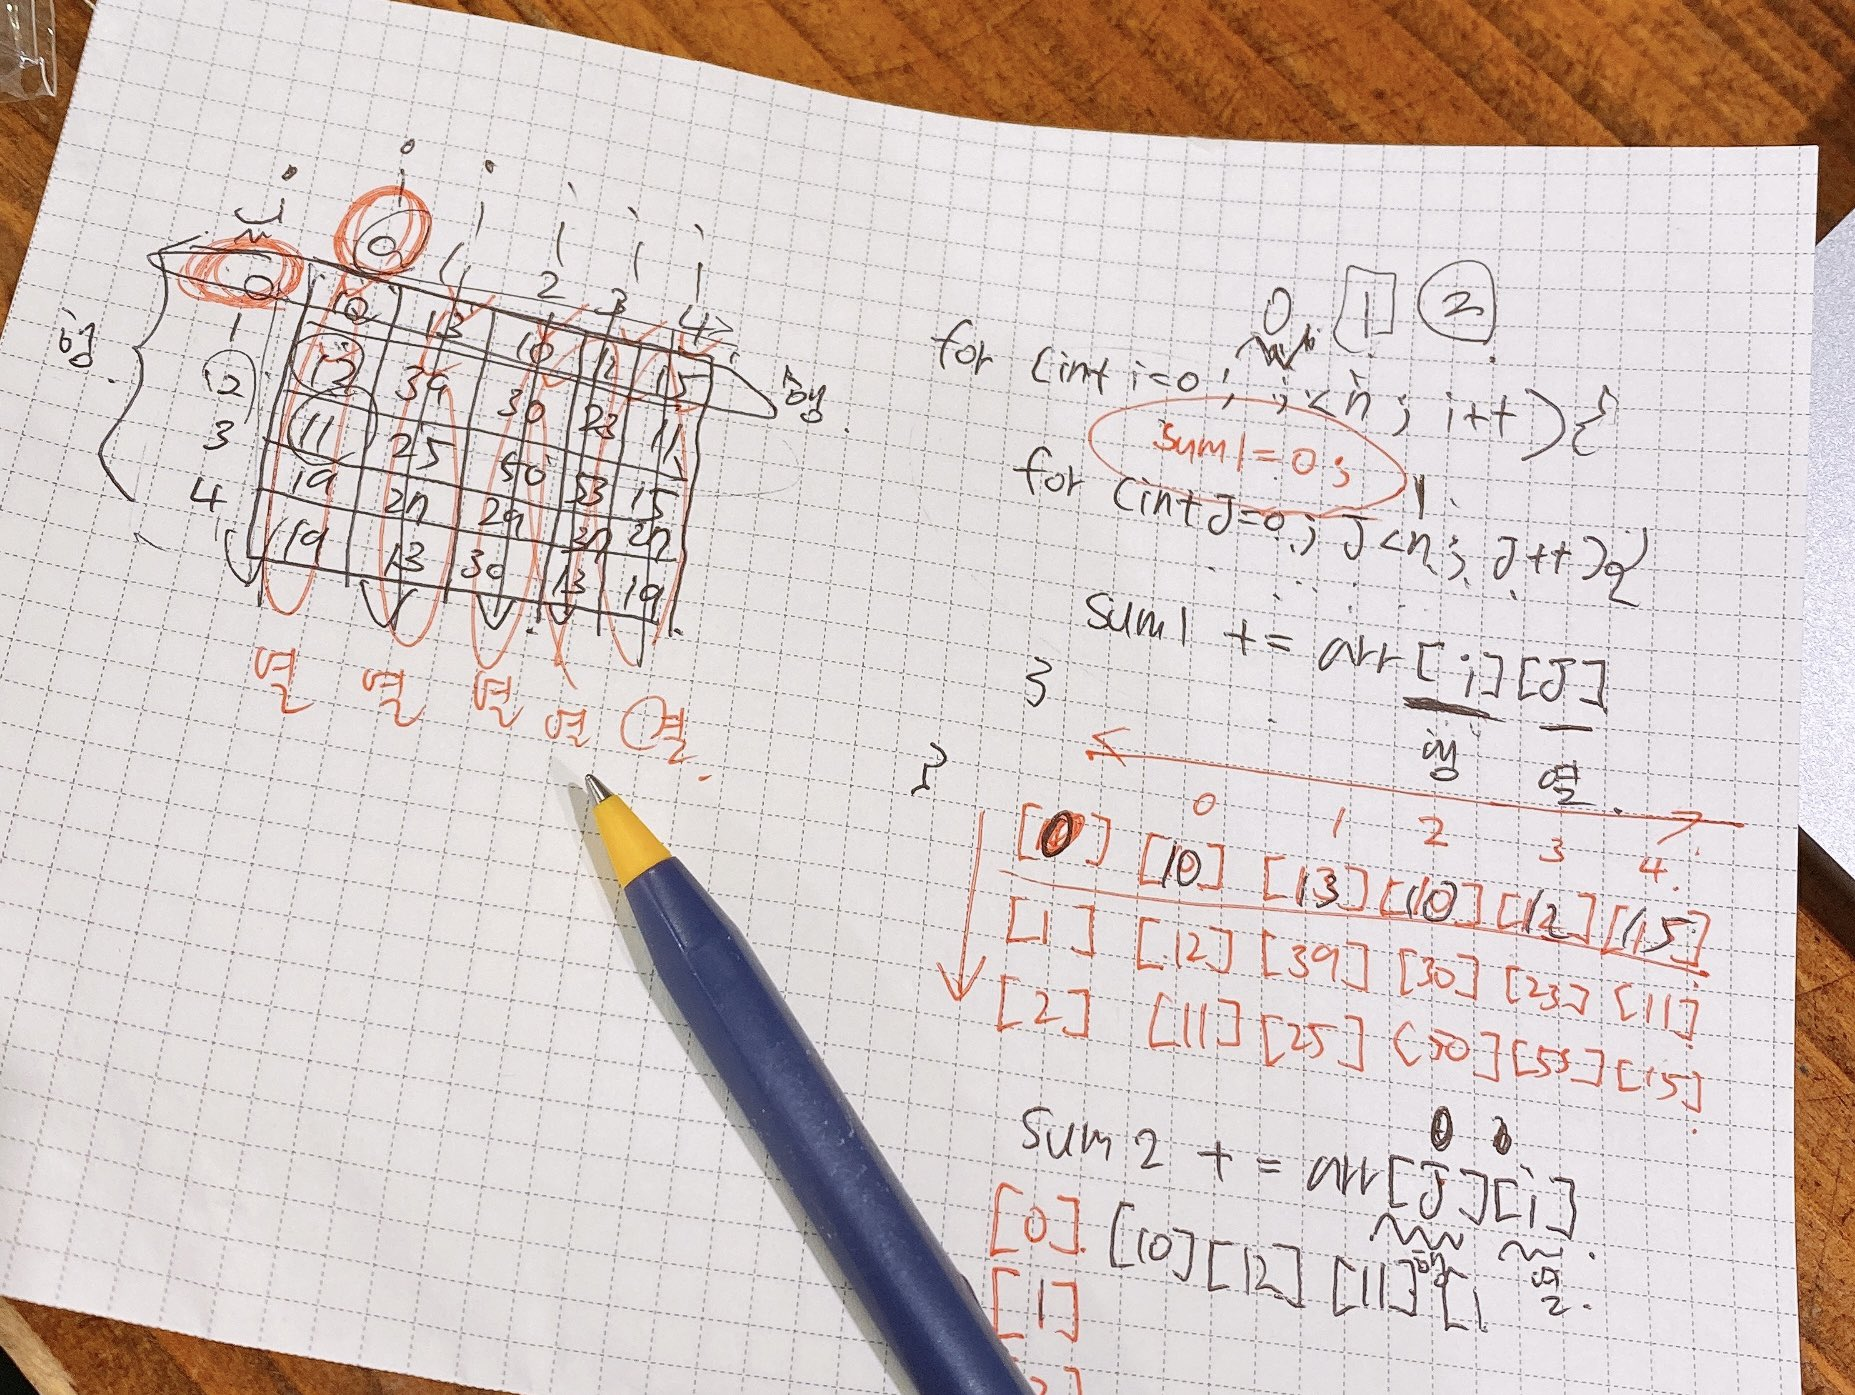 0 1 2 3 4
0 10 13 10 12 15
1 12 39 30 23 11
행
행
2 11 25 50 53 15
3 19 27 29 37 27
4 19 13 30 13 19
열 열 열 열 열.
0 1 2
for (int i=0; i<n; i++){
sum1=0;
for (int J=0; J<n; J++){
sum1 += arr[i][J]
}
행 열
}
0 1 2 3 4.
[0] [10] [13] [10] [12] [15]
[1] [12] [39] [30] [23] [11]
[2] [11] [25] [50] [53] [15]
0 0
sum2 += arr[J][i]
행 열
[0] [10] [12] [11] [1
[1]